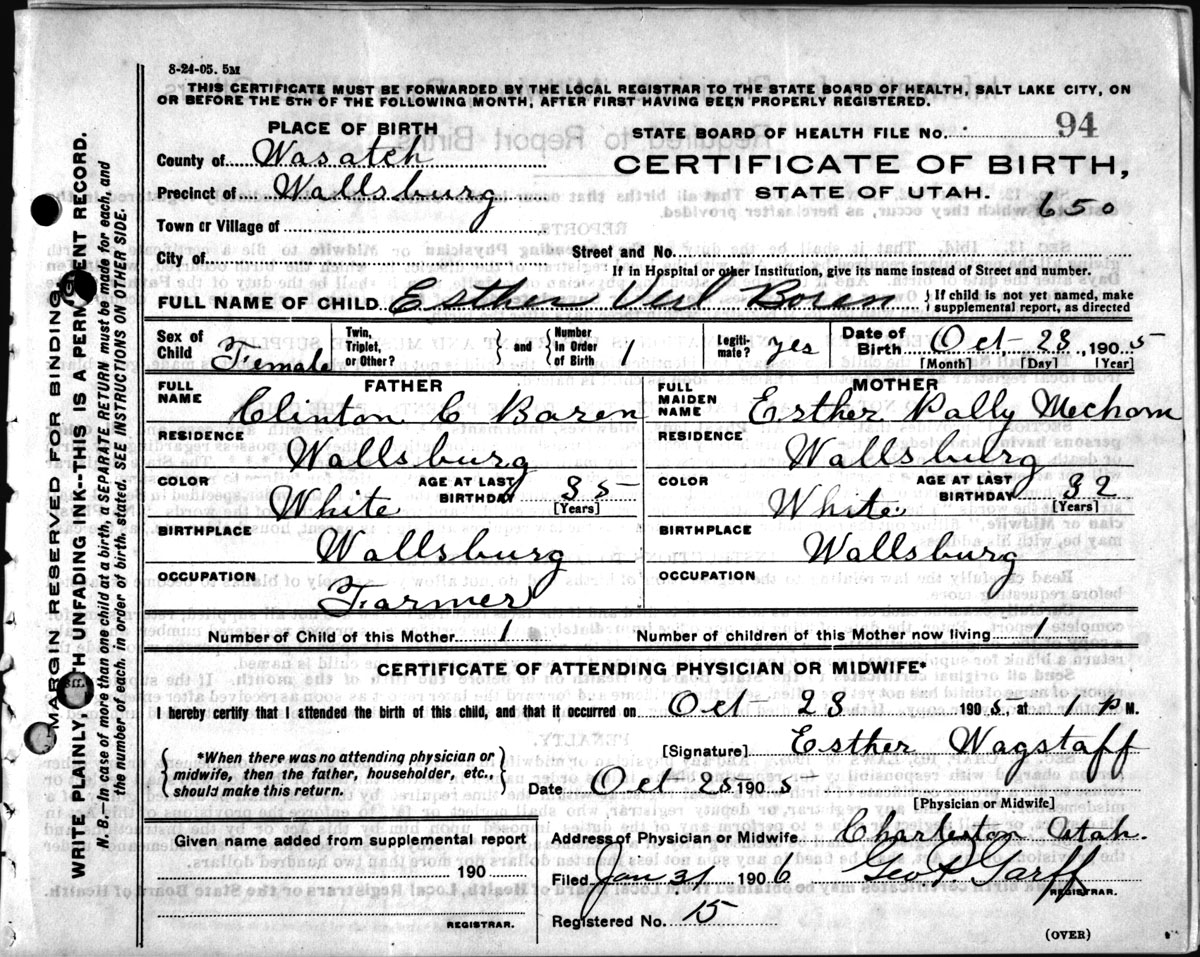 8-24-05. 5M
THIS CERTIFICATE MUST BE FORWARDED BY THE LOCAL REGISTRAR TO THE STATE BOARD OF HEALTH, SALT LAKE CITY, ON
OR BEFORE THE 5TH OF THE FOLLOWING MONTH, AFTER FIRST HAVING BEEN PROPERLY REGISTERED.
PLACE OF BIRTH
County of Wasatch
Precinct of Wallsburg
Town or Village of
City of
STATE BOARD OF HEALTH FILE No. 94
CERTIFICATE OF BIRTH,
STATE OF UTAH.
650
Street and No.
If in Hospital or other Institution, give its name instead of Street and number.
FULL NAME OF CHILD Esther Verl Boren } If child is not yet named, make
supplemental report, as directed
Sex of Child Female
Twin, Triplet, or Other? } and { Number In Order of Birth 1
Legiti-mate? yes
Date of Birth Oct 23, 1905
[Month] [Day] [Year]
FATHER
FULL NAME Clinton C Boren
RESIDENCE Wallsburg
COLOR White AGE AT LAST BIRTHDAY 35 [Years]
BIRTHPLACE Wallsburg
OCCUPATION Farmer
MOTHER
FULL MAIDEN NAME Esther Polly Mecham
RESIDENCE Wallsburg
COLOR White AGE AT LAST BIRTHDAY 32 [Years]
BIRTHPLACE Wallsburg
OCCUPATION
Number of Child of this Mother 1 Number of children of this Mother now living 1
CERTIFICATE OF ATTENDING PHYSICIAN OR MIDWIFE*
I hereby certify that I attended the birth of this child, and that it occurred on Oct 23 1905, at 1 P M.
{ *When there was no attending physician or
midwife, then the father, householder, etc.,
should make this return. }
[Signature] Esther Wagstaff
Date Oct 25 1905
[Physician or Midwife]
Given name added from supplemental report
190
REGISTRAR.
Address of Physician or Midwife Charleston Utah.
Filed Jan 31 1906 Geo P Garff
REGISTRAR.
Registered No. 15
(OVER)
MARGIN RESERVED FOR BINDING
WRITE PLAINLY WITH UNFADING INK--THIS IS A PERMANENT RECORD.
N. B.—In case of more than one child at a birth, a SEPARATE RETURN must be made for each, and
the number of each, in order of birth, stated. SEE INSTRUCTIONS ON OTHER SIDE.